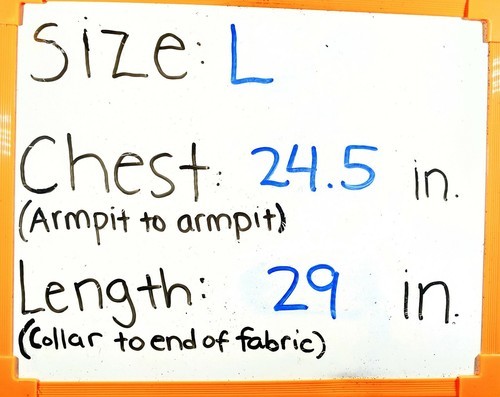 Size: L
Chest: 24.5 in.
(Armpit to armpit)
Length: 29 in.
(Collar to end of fabric)